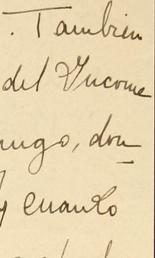 . Tambien
del Yncome
ungo, don
y cuanto